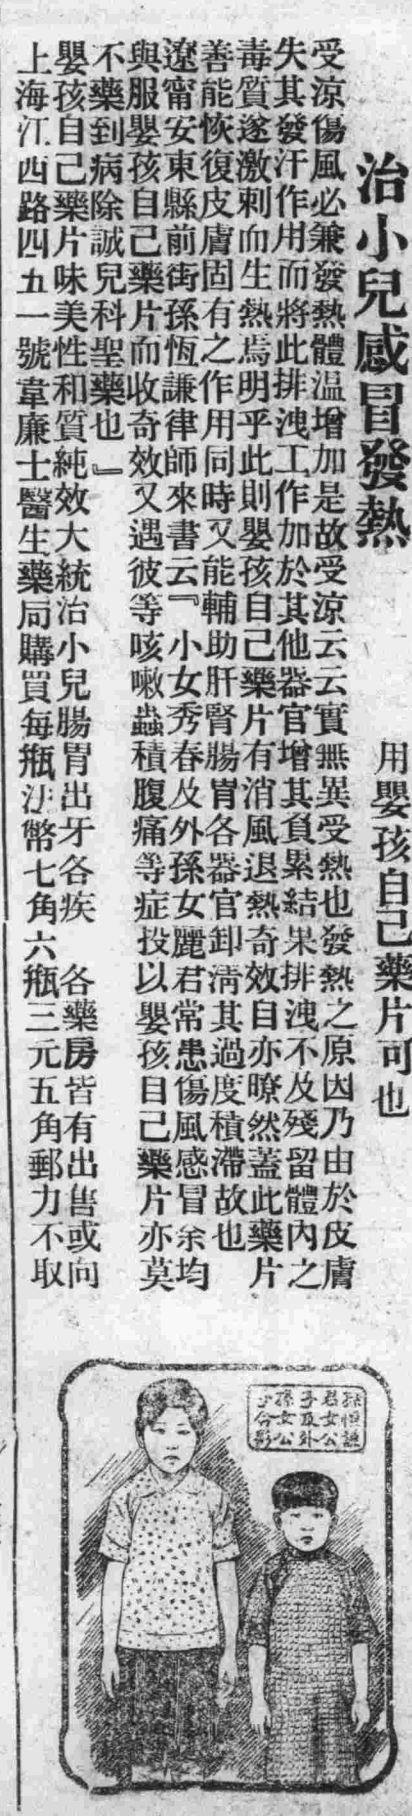 治小兒感冒發熱
用嬰孩自己藥片可也
受涼傷風必兼發熱體温增加是故受涼云云實無異受熱也發熱之原因乃由於皮膚
失其發汗作用而將此排洩工作加於其他器官增其負累結果排洩不及殘留體內之
毒質遂激刺而生熱焉明乎此則嬰孩自己藥片有消風退熱奇效自亦暸然蓋此藥片
善能恢復皮膚固有之作用同時又能輔助肝腎腸胃各器官卸清其過度積滯故也
遼甯安東縣前街孫恆謙律師來書云『小女秀春及外孫女麗君常患傷風感冒余均
與服嬰孩自己藥片而收奇效又遇彼等咳嗽蟲積腹痛等症投以嬰孩自己藥片亦莫
不藥到病除誠兒科聖藥也』
嬰孩自己藥片味美性和質純效大統治小兒腸胃出牙各疾　各藥房皆有出售或向
上海江西路四五一號韋廉士醫生藥局購買每瓶法幣七角六瓶三元五角郵力不取
孫恒謙
君女公
子及外
孫女公
子合影